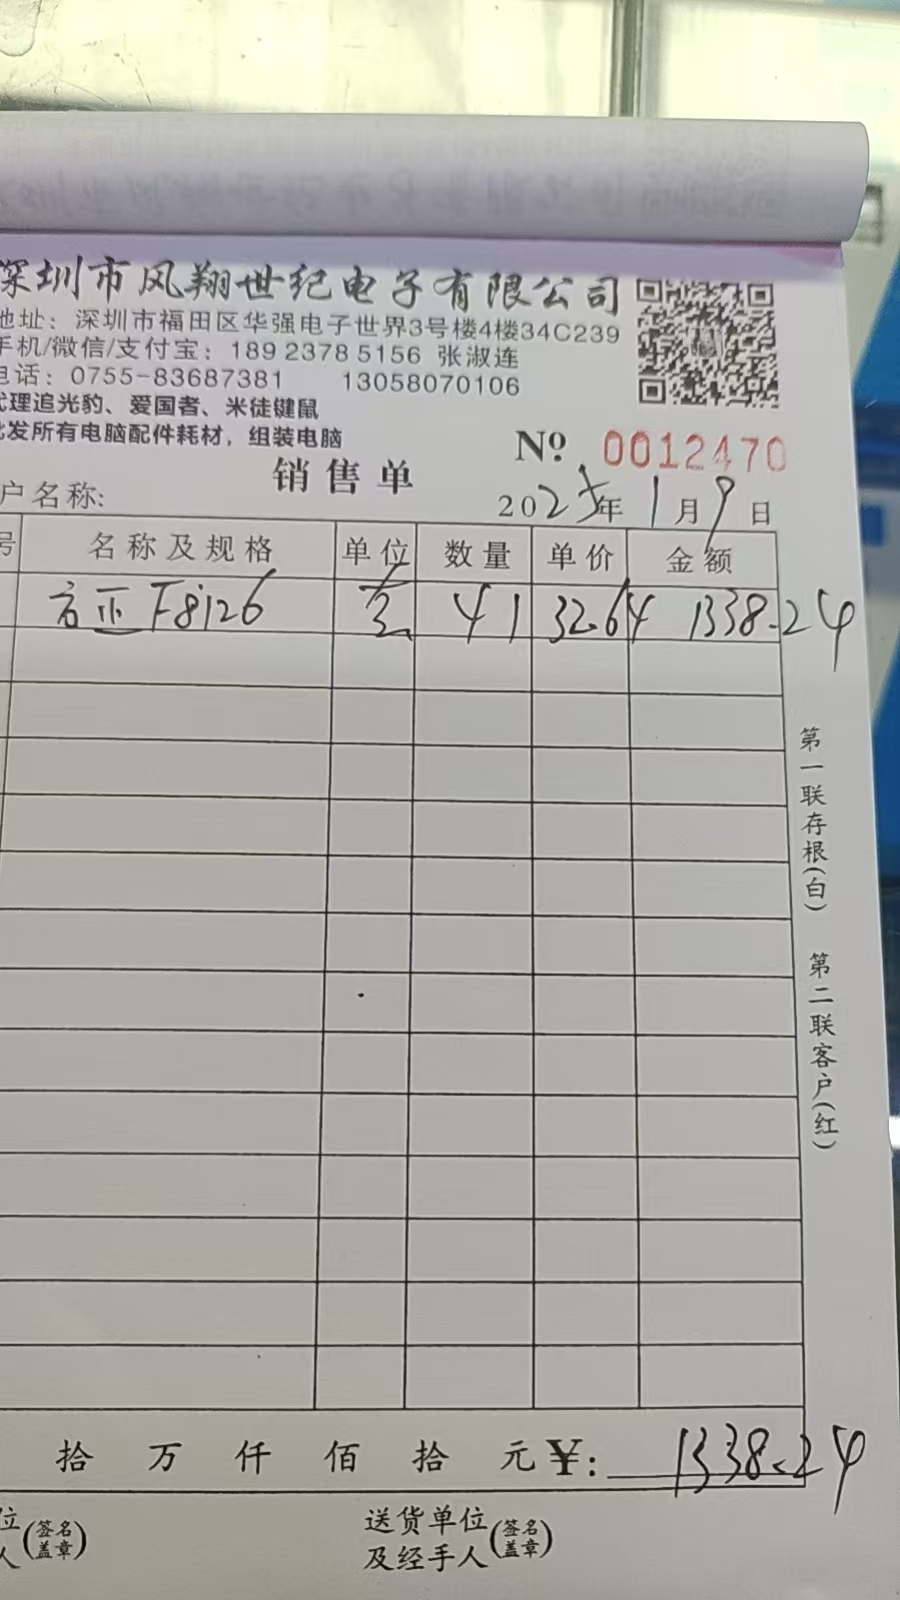 深圳市风翔世纪电子有限公司
地址：深圳市福田区华强电子世界3号楼4楼34C239
手机/微信/支付宝：189 2378 5156 张淑连
电话：0755-83687381 13058070106
代理追光豹、爱国者、米徒键鼠
批发所有电脑配件耗材，组装电脑
№ 0012470
销售单
户名称:
2025年1月9日
号 名称及规格 单位 数量 单价 金额
F8126 41 32.64 1338.24
第一联存根(白)
第二联客户(红)
拾 万 仟 佰 拾 元¥: 1338.24
位 人(签名盖章)
送货单位及经手人(签名盖章)